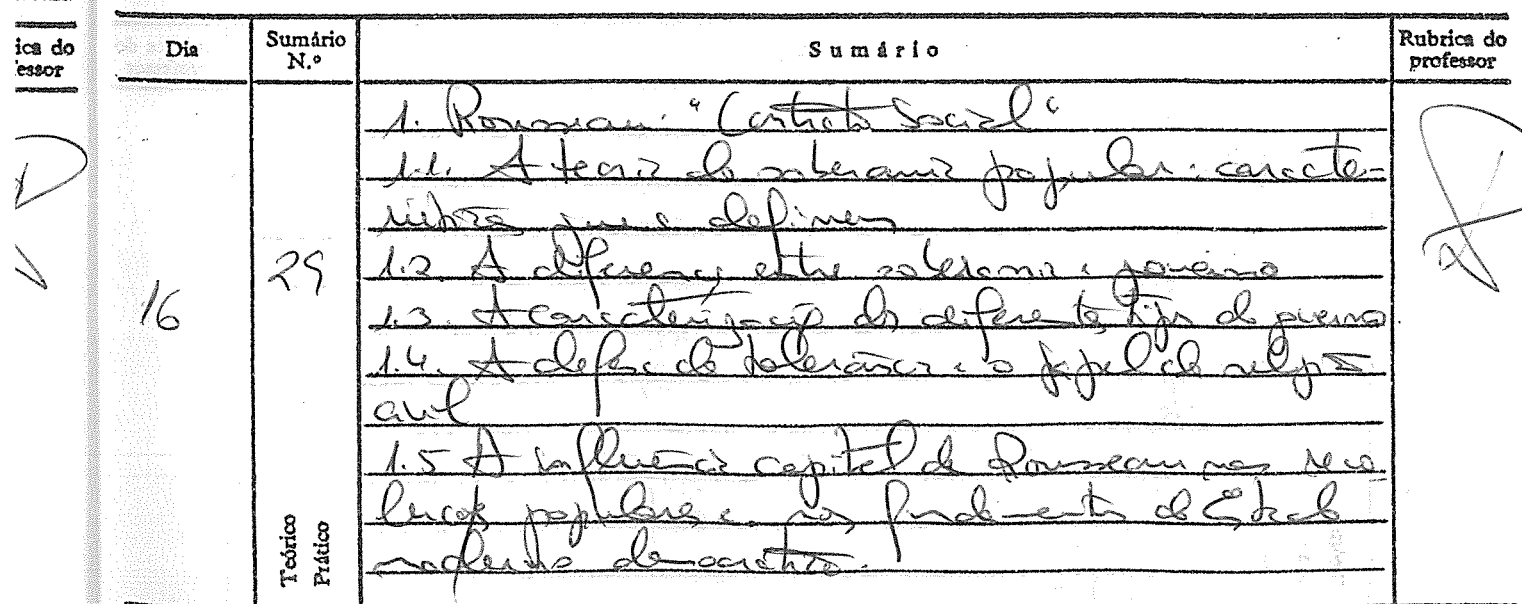 ica do
essor
Dia
Sumário
N.º
Sumário
Rubrica do
professor
16
29
1. Rousseau: "Contrato Social"
1.1. A teoria da soberania popular: caracte-
rísticas que a definem
1.2 A diferença entre soberania e governo
1.3. A caracterização dos diferentes tipos de governo
1.4. A defesa da tolerância e o papel da religião
civil
1.5 A influência capital de Rousseau nas revo
luções populares e nos fundamentos do Estado
moderno democrático.
Teórico
Prático